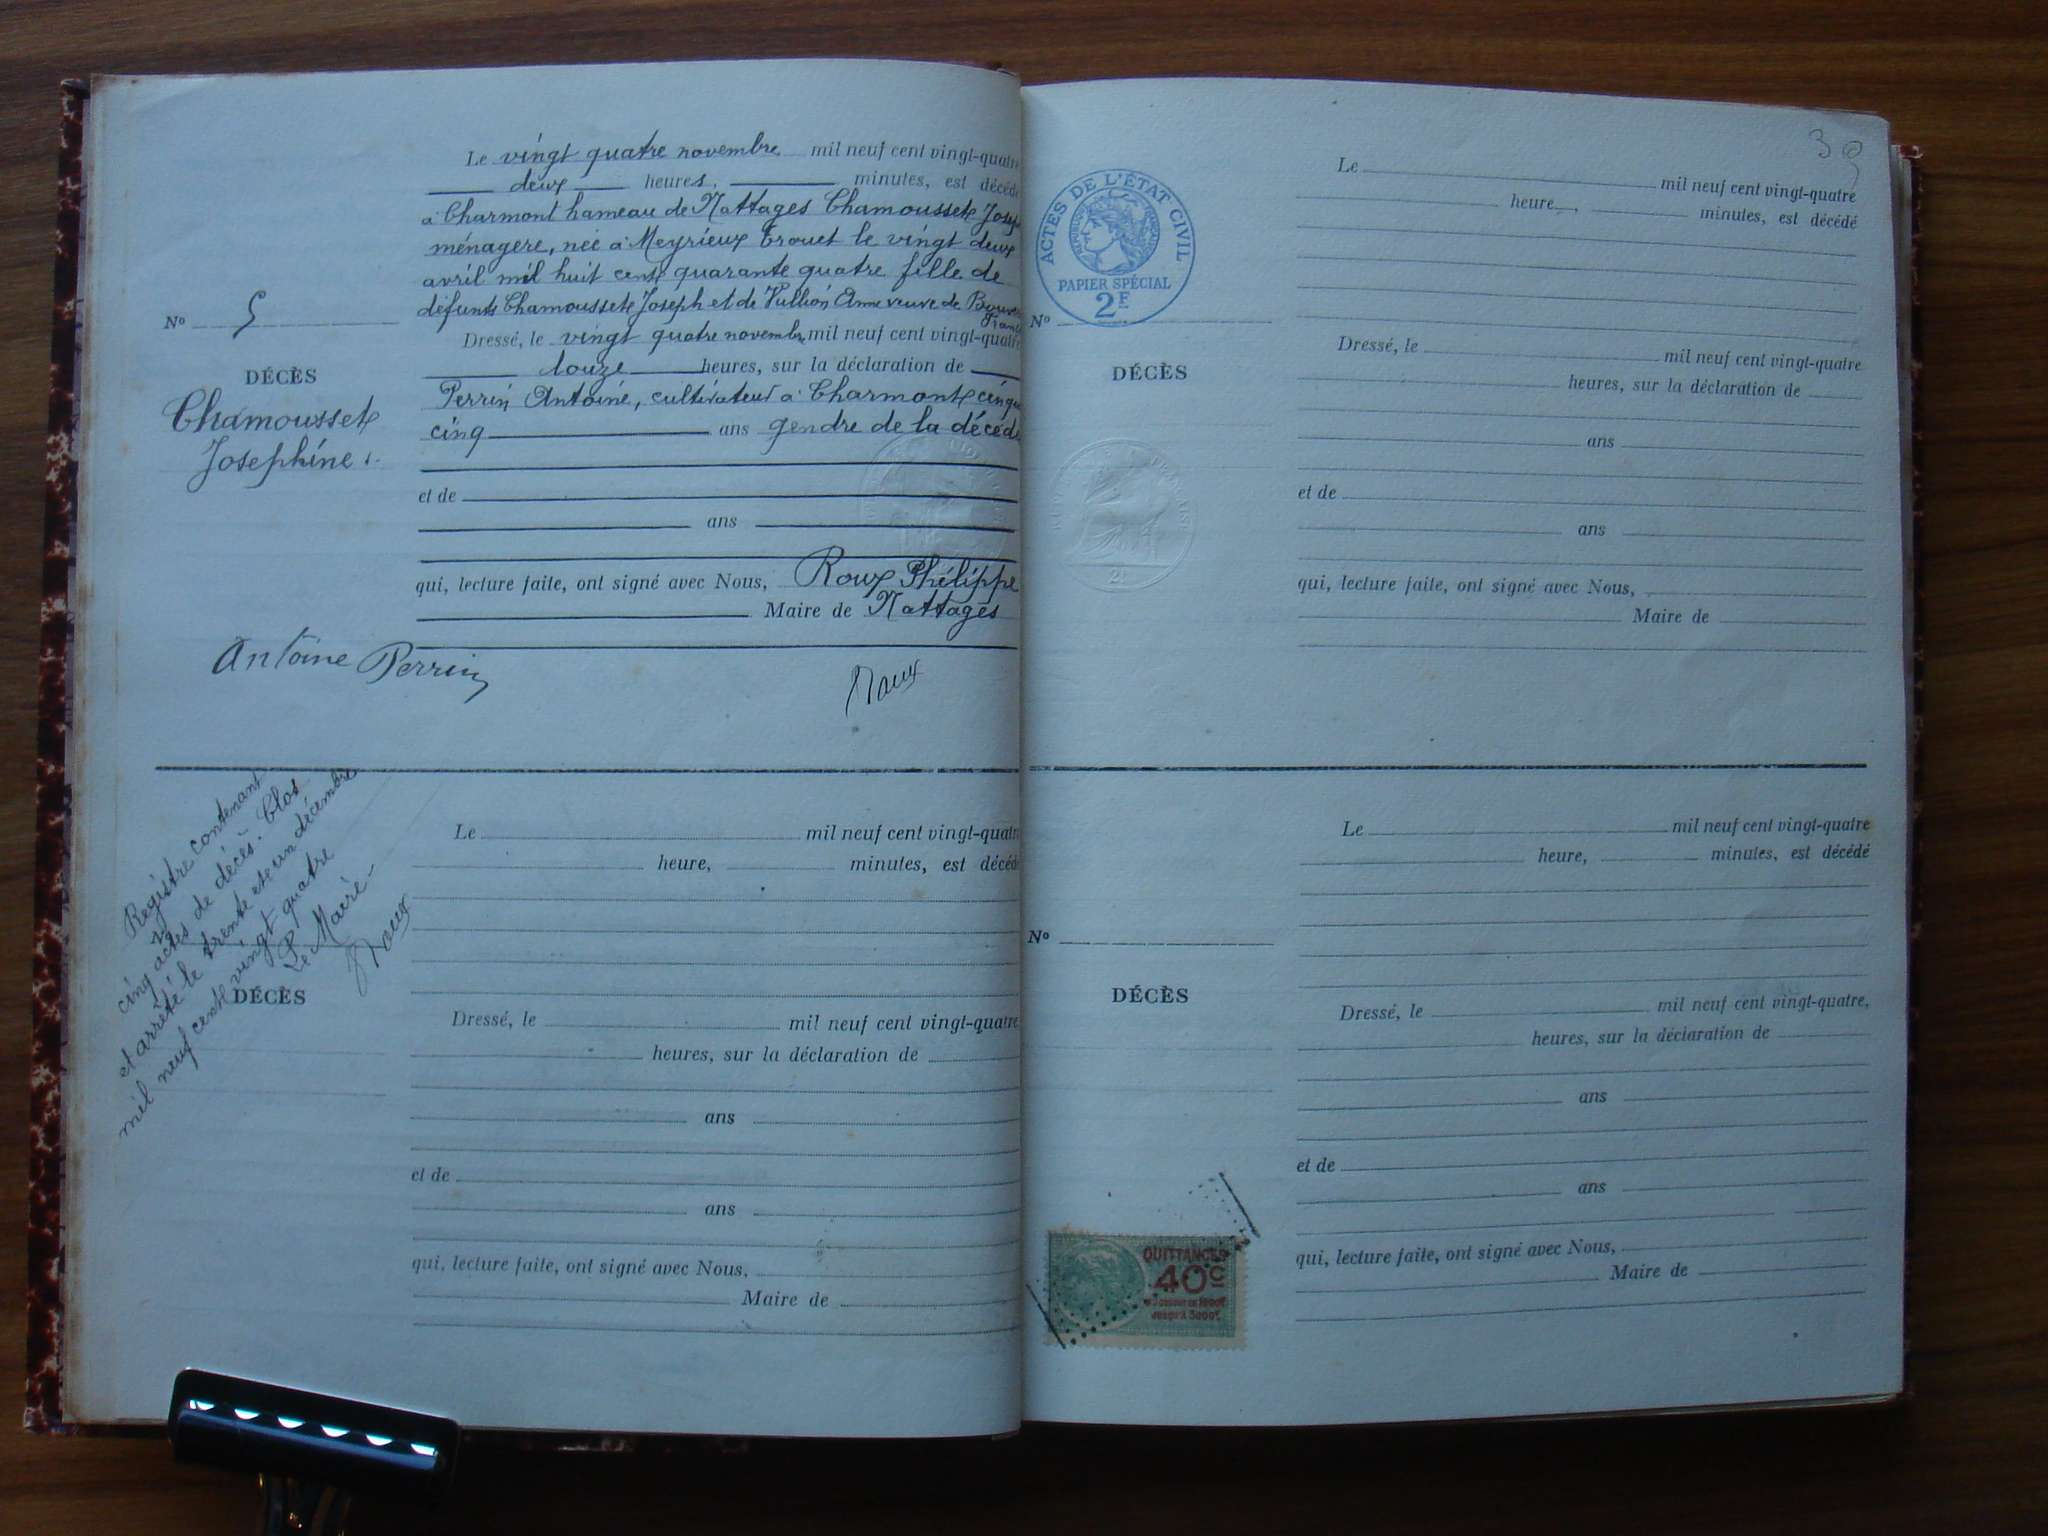 Le vingt quatre novembre mil neuf cent vingt-quatre
deux heures, minutes, est décédé
à Charmont hameau de Nattages Chamousset
ménagère, née à Meyrieux Trouet le vingt deux
avril mil huit cent quarante quatre fille de
défunts Chamousset Joseph et de Vullion Anne veuve de
Nº 5
Dressé, le vingt quatre novembre mil neuf cent vingt-quatre
heures, sur la déclaration de
DÉCÈS
Chamousset
Josephine
Perrin Antoine, cultivateur à Charmont
cinq ans gendre de la
et de
ans
qui, lecture faite, ont signé avec Nous, Roux Phélippe
Maire de Nattages
Antoine Perrin
Roux
Registre contenant
cinq actes de décès. Clos
et arrêté le trente et un décembre
mil neuf cent vingt quatre
Le Maire
Roux
Le mil neuf cent vingt-quatre
heure, minutes, est décédé
DÉCÈS
Dressé, le mil neuf cent vingt-quatre
heures, sur la déclaration de
ans
et de
ans
qui, lecture faite, ont signé avec Nous,
Maire de
39
ACTES DE L'ÉTAT CIVIL
RÉPUBLIQUE FRANÇAISE
PAPIER SPÉCIAL
2F
Le mil neuf cent vingt-quatre
heure, minutes, est décédé
Nº
Dressé, le mil neuf cent vingt-quatre
DÉCÈS
heures, sur la déclaration de
ans
et de
ans
qui, lecture faite, ont signé avec Nous,
Maire de
Le mil neuf cent vingt-quatre
heure, minutes, est décédé
Nº
DÉCÈS
Dressé, le mil neuf cent vingt-quatre,
heures, sur la déclaration de
ans
et de
ans
qui, lecture faite, ont signé avec Nous,
Maire de
QUITTANCES
40c
jusqu'à 3000F